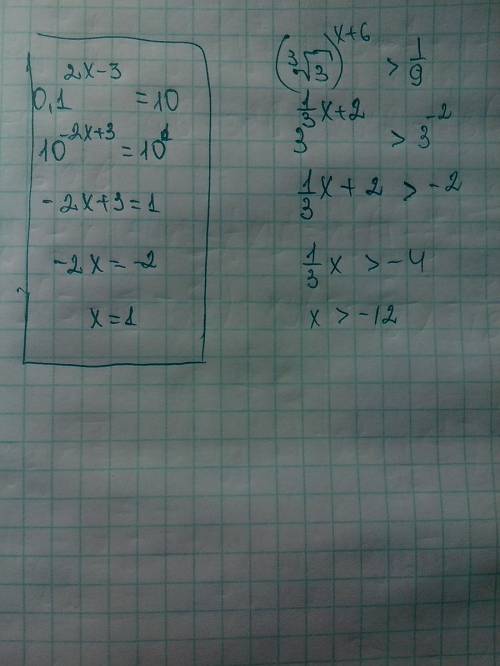 0,1^{2x-3} = 10
10^{-2x+3} = 10^{1}
-2x+3=1
-2x = -2
x = 1
(∛3)^{x+6} > 1/9
3^{1/3 x+2} > 3^{-2}
1/3 x + 2 > -2
1/3 x > -4
x > -12